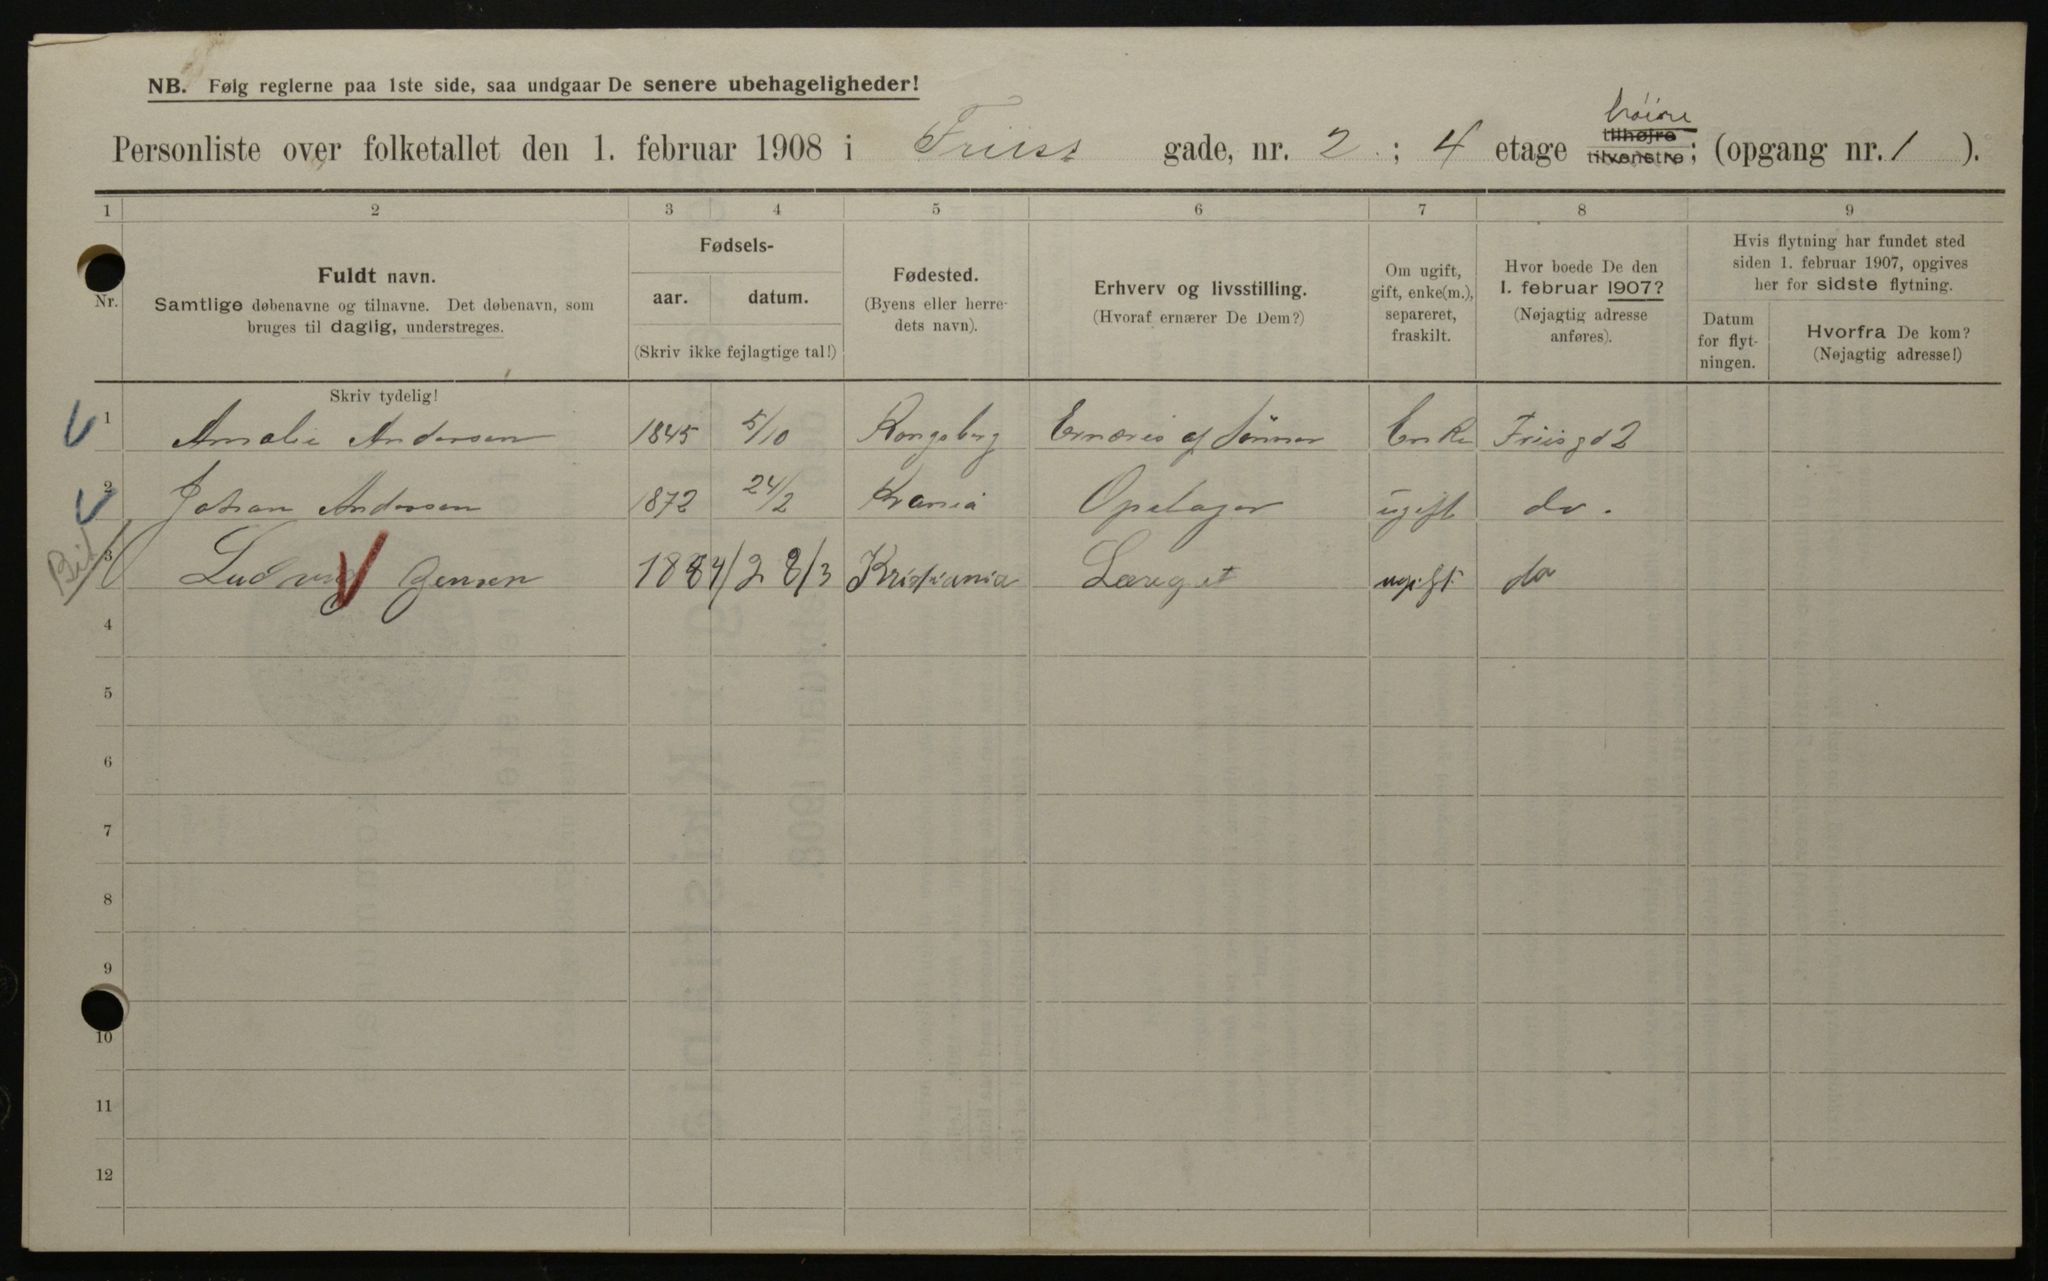 NB. Følg reglerne paa 1ste side, saa undgaar De senere ubehageligheder!
høire
Personliste over folketallet den 1. februar 1908 i Friiss gade, nr. 2 ; 4 etage tilhøjre tilvenstre; (opgang nr. 1 ).
1 2 3 4 5 6 7 8 9
Nr.
Fuldt navn.
Samtlige døbenavne og tilnavne. Det døbenavn, som
bruges til daglig, understreges.
Skriv tydelig!
Fødsels-
aar. datum.
(Skriv ikke fejlagtige tal!)
Fødested.
(Byens eller herre-
dets navn).
Erhverv og livsstilling.
(Hvoraf ernærer De Dem?)
Om ugift,
gift, enke(m.),
separeret,
fraskilt.
Hvor boede De den
1. februar 1907?
(Nøjagtig adresse
anføres).
Hvis flytning har fundet sted
siden 1. februar 1907, opgives
her for sidste flytning.
Datum
for flyt-
ningen.
Hvorfra De kom?
(Nøjagtig adresse!)
1 Amalie Andersen 1845 5/10 Kongsberg Ernæres af sønner Enke Friisgd 2
2 Johan Andersen 1872 24/2 Krania ugift do.
Bi
3 Ludvig Jensen 1884 28/3 Kristiania ugift do
4
5
6
7
8
9
10
11
12